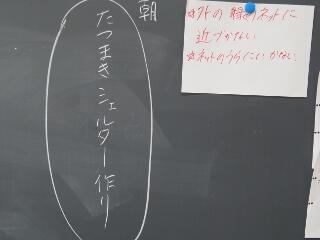 朝
たつまきシェルター作り
☆外の緑のネットに
近づかない
☆ネットのうらにいかない